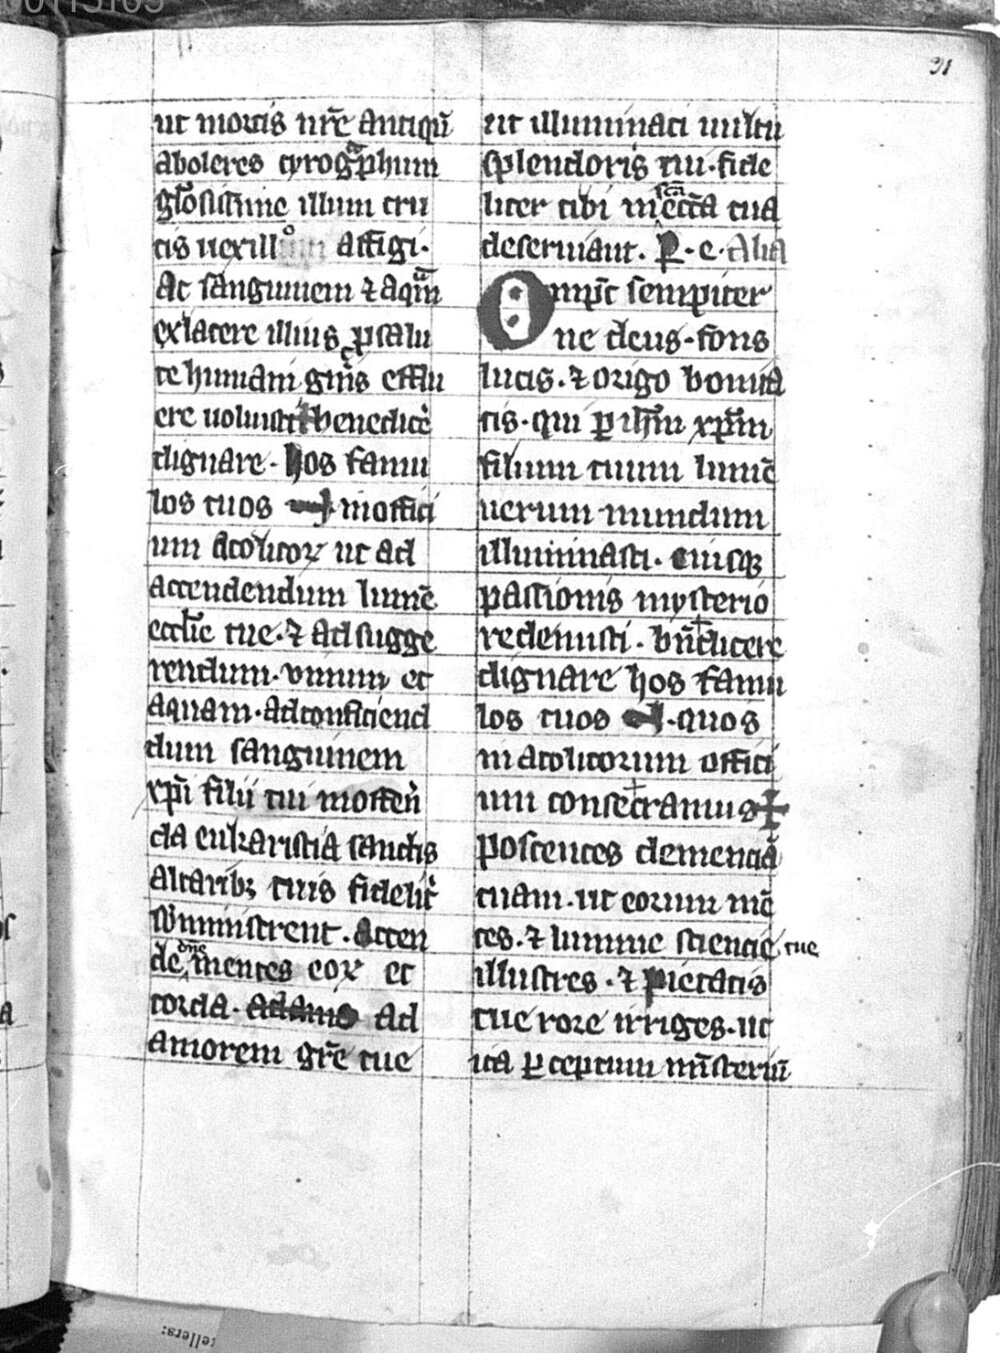 31
ut mortis nr̄e antiqū
aboleres cyrogᵃphum
gl̄osissime illum cru
cis uexillᵒ affigi.
Ac sanguinem ⁊ aquā
ex latere illius ꝓ salu
te humani gn̄is efflu
ere uoluisti ✝ benedicē
dignare. hos famu
los tuos in offici
um acolitoꝝ ut ad
accendendum lumē
eccl̄ie tue. ⁊ ad sugge
rendum. uinum et
aquam. ad conficiend
dum sanguinem
xp̄i filii tui in offerē
da eukaristia sanctis
altarib; tuis fidelit̄
sumministrent. Accen
de dn̄e mentes eoꝝ et
corda. ad
amorem gr̄e tue
ut illuminati uultu
splendoris tui. fide
liter tibi in sc̄a ecc̄a tua
deseruiant. P. e. Alia
Omp̄s sempiter
ne deus. fons
lucis. ⁊ origo bonita
tis. qui ꝑ ih̄m xp̄m
filium tuum lumē
uerum mundum
illuminasti. eiusqꝫ
passionis mysterio
redemisti. bn̄✝dicere
dignare hos famu
los tuos. quos
in acolitorum offici
um consecramus ✝
poscentes clemenciā
tuam. ut eorum mē
tes. ⁊ lumine sciencie tue
illustres. ⁊ pietatis
tue rore irriges. ut
ita ꝑceptum mīsteriū
ellers: